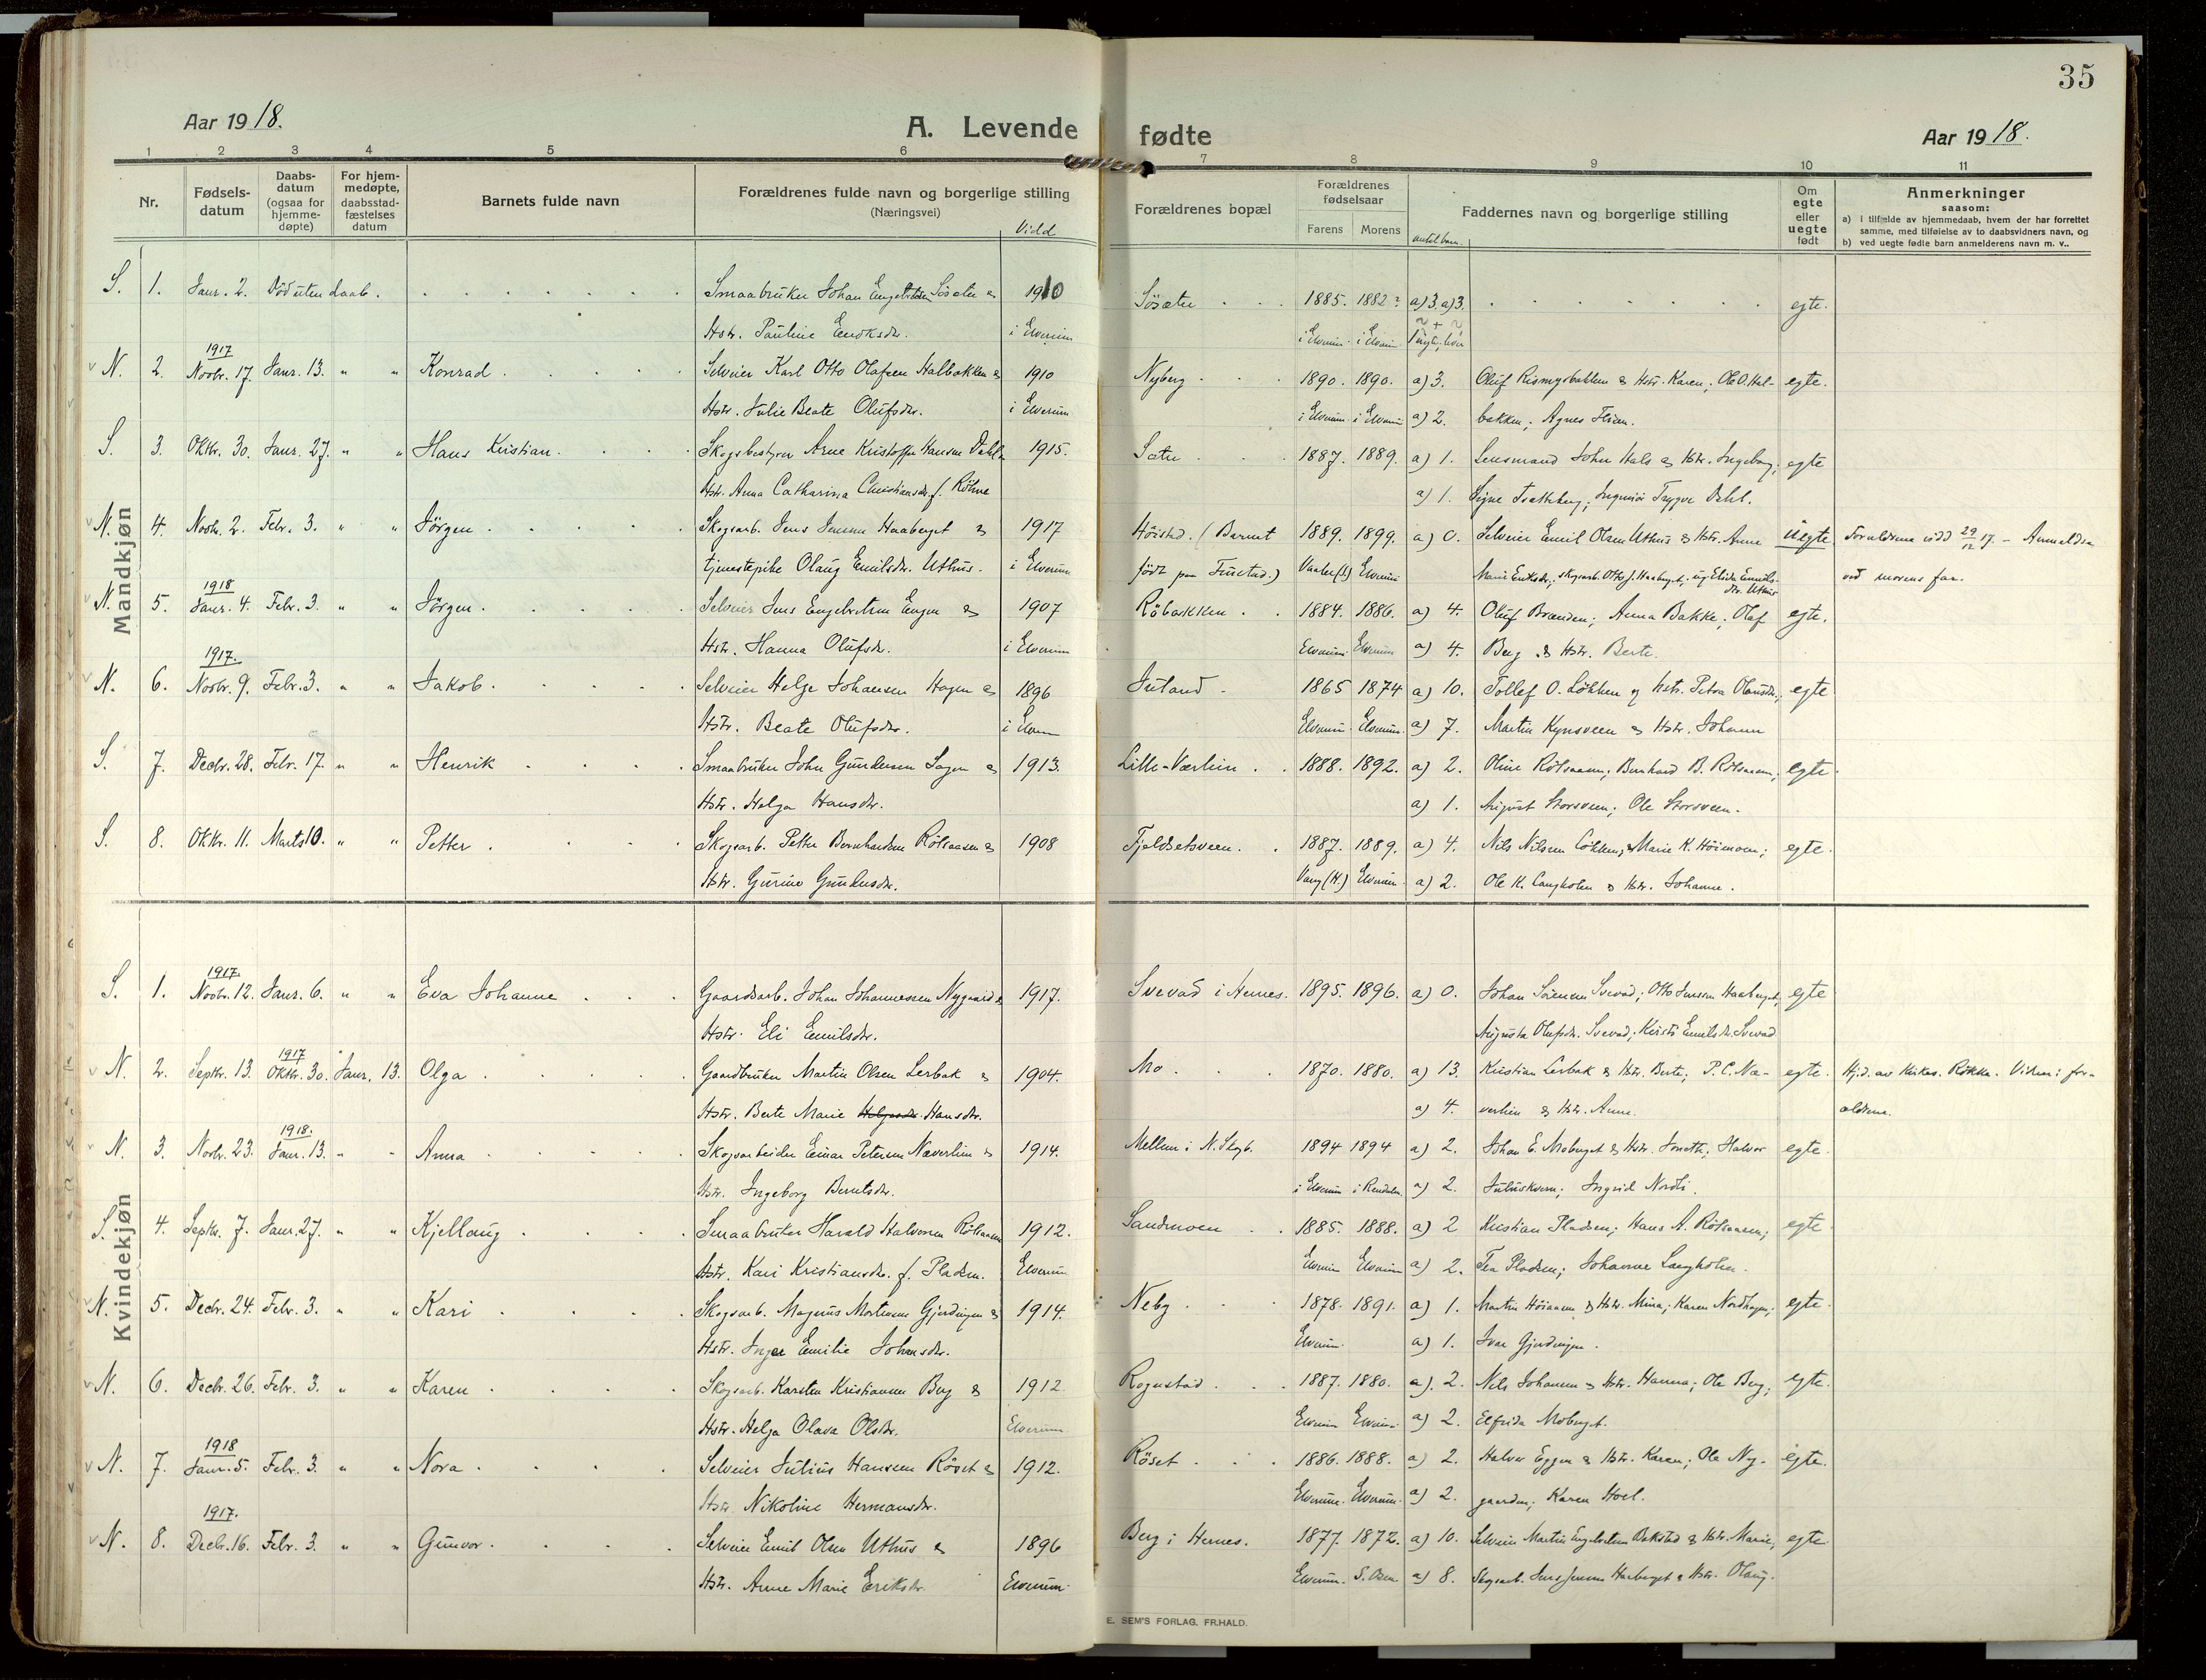 35
Aar 1918.
A. Levende fødte
Aar 1918.
1 2 3 4 5 6 7 8 9 10 11
Nr.
Fødsels-
datum
Daabs-
datum
(ogsaa for
hjemme-
døpte)
For hjem-
medøpte,
daabsstad-
fæstelses
datum
Barnets fulde navn
Forældrenes fulde navn og borgerlige stilling
(Næringsvei)
Vidd
Forældrenes bopæl
Forældrenes
fødselsaar
Farens Morens
antal barn.
Faddernes navn og borgerlige stilling
Om
egte
eller
uegte
født
Anmerkninger
saasom:
a) i tilfælde av hjemmedaab, hvem der har forrettet
samme, med tilføielse av to daabsvidners navn, og
b) ved uegte fødte barn anmelderens navn m. v..
Mandkjøn
S. 1. Janr. 2. Död uten daab. Smaabruker Johan Söræter & 1910 1885. 1882? a) 3. a) 3. egte.
Hstr. Pauline i Elverum i Elverum i Elverum
1917
N. 2. Novbr. 17. Janr. 13. " " Konrad Selveier Karl Otto Olafsen Halbakken & 1910 Nyberg 1890. 1890. a) 3. Oluf & Hstr. Karen; Ole O. Hal- egte.
Hstr. Julie Beate Olufsdr. i Elverum i Elverum i Elverum a) 2. bakken; Agnes
S. 3. Oktbr. 30. Janr. 27. " " Hans Kristian Skogsbestyrer Arne Kristoffer Hansen Dahl & 1915. Sætre 1887. 1889. a) 1. Lensmand John Hals & Hstr. Ingeborg; egte
Hstr. Anna Catharina Christiansdr. f. Röhne a) 1. Signe Ingeniör Trygve Dahl.
N. 4. Novbr. 2. Febr. 3. " " Jörgen Skogsarb. Jens Jensen Haaberget & 1917 Höistad. (Barnet 1889. 1899. a) 0. Selveier Emil Olsen Uthus & Hstr. Anne uegte Forældrene vidd 29/12 17. - Anmeldsen
tjenestepike Olaug Emilsdr. Uthus. i Elverum født paa ) Vaaler (S) Elverum Marie Eriksdr.; skogsarb. Otto J. Haaberget; Emils- ved morens far.
dtr. Uthus
1918
N. 5. Janr. 4. Febr. 3. Jörgen Selveier Jens Engebretsen Engen & 1907 Röbakken 1884. 1886. a) 4. Oluf Brænden; Anna Bakke; Olaf egte.
Hstr. Hanna Olufsdr. i Elverum Elverum Elverum a) 4. Berg & Hstr. Berte.
1917.
N. 6. Novbr. 9. Febr. 3. " " Jakob Selveier Helge Johansen Hagen & 1896 Juland 1865 1874 a) 10. Tollef O. Løkken og hstr. Petra egte
Hstr. Beate Olufsdr. i Elverum Elverum Elverum. a) 7. Martin Kynsveen & Hstr. Johanne
S. 7. Decbr. 28. Febr. 17. " " Henrik Smaabruker John Gundersen & 1913. Lille-Værlien 1888. 1892. a) 2. Oline Rötsaasen; Bernhard B. Rötsaasen; egte
Hstr. Helga Hansdr. a) 1. August Storsveen; Ole Storsveen.
S. 8. Oktbr. 11. Marts 10. " " Petter Skogsarb. Petter Bernhardsen Rötsaasen & 1908 Fjeldsetsveen. 1887. 1889. a) 4. Nils Nilsen Løkken; Marie K. Höimoen; egte.
Hstr. Gurine Gundersdr. Vang (H.) Elverum a) 2. Ole K. Langholen & Hstr. Johanne.
Kvindekjøn
1917.
S. 1. Novbr. 12. Janr. 6. " " Eva Johanne Gaardsarb. Johan Johannessen Nygaard & 1917. Svevad i Hernes. 1895. 1896. a) 0. Johan Sörensen Svevad; Otto Jensen Haaberget; egte
Hstr. Eli Emilsdr. Augusta Olufsdr. Svevad; Kirsti Emilsdr. Svevad
1917
N. 2. Septbr. 13. Oktbr. 30. Janr. 13. Olga Gaardbruker Martin Olsen Lerbak & 1904. Mo. 1870. 1880. a) 13. Kristian Lerbak & Hstr. Berte; P. C. Næ- egte. Hj.d. av kirkes. Rökke. Vidner: for-
Hstr. Berte Marie Hansdr. a) 4. verlien & Hstr. Anne. ældrene.
1918.
N. 3. Novbr. 23. Janr. 13. " " Anna Skogsarbeider Einar Petersen Næverlien & 1914. Mellum i N. Skogb. 1894 1894 a) 2. Johan E. Moberget & Hstr. Halvor egte.
Hstr. Ingeborg Berntsdr. i Elverum i Rendalen a) 2. Juluskveen; Ingrid Nordli.
S. 4. Septbr. 7. Janr. 27. " " Kjellaug Smaabruker Harald Halvorsen Rötsaasen 1912. Sandmoen 1885. 1888. a) 2 Kristian Pladsen; Hans A. Rötsaasen; egte
Hstr. Kari Kristiansdr. f. Pladsen. Elverum Elverum Elverum a) 2. Tea Pladsen; Johanne Langholen.
N. 5. Decbr. 24. Febr. 3. " " Kari Skogsarb. Magnus Mortensen Gjerdingen & 1914. Neby 1878. 1891. a) 1. Martin Höiaasen & Hstr. Mina; Karen Nordhagen; egte
Hstr. Inger Emilie Johansdr. Elverum. a) 1. Ivar Gjerdingen.
N. 6. Decbr. 26. Febr. 3. " " Karen Skogsarb. Karsten Kristiansen Berg & 1912 Rognstad 1887. 1880. a) 2. Nils Johansen & Hstr. Hanna; Ole Berg; egte.
Hstr. Helga Olava Olsdr. Elverum Elverum Elverum a) 2. Elfrida Moberget.
1918
N. 7. Janr. 5. Febr. 3. " " Nora Selveier Julius Hansen Röset & 1912. Röset 1886. 1888. a) 2. Halvor Eggen & Hstr. Karen; Ole Ny- egte.
Hstr. Nikoline Hermansdr. Elverum. Elverum. a) 2. gaarden; Karen Hoel.
1917.
N. 8. Decbr. 16. Febr. 3. " " Gunvor Selveier Emil Olsen Uthus & 1896 Berg i Hernes. 1877. 1872. a) 10. Selveier Martin Engebretsen Bakstad & Hstr. Marie; egte
Hstr. Anne Marie Eriksdr. Elverum Elverum. S. Osen a) 8. Skogsarb. Jens Jensen Haaberget & Hstr. Olaug.
E. SEM'S FORLAG, FR.HALD.